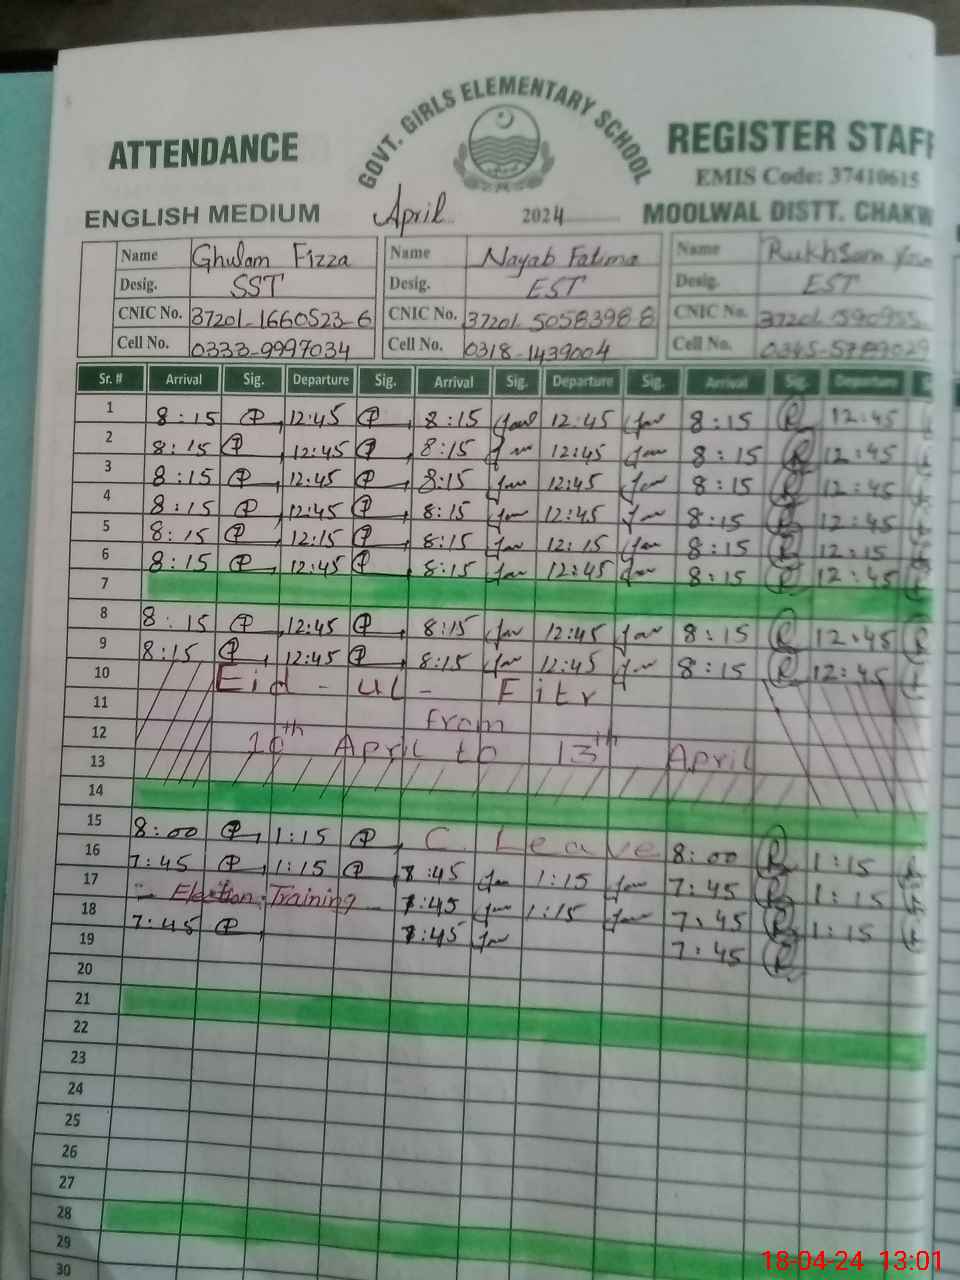 GOVT. GIRLS ELEMENTARY SCHOOL
ATTENDANCE REGISTER STAFF
EMIS Code: 37410615
ENGLISH MEDIUM April 2024 MOOLWAL DISTT. CHAKW
Name Ghulam Fizza Name Nayab Fatima Name
Desig. SST Desig. EST Desig. EST
CNIC No. 37201-1660523-6 CNIC No. 37201-5058398-8 CNIC No.
Cell No. 0333-9997034 Cell No. 0318-1439004 Cell No.
Sr. # Arrival Sig. Departure Sig. Arrival Sig. Departure Sig. Arrival Sig. Departure
1 8:15 12:45 8:15 12:45 8:15 R 12:45
2 8:15 12:45 8:15 12:45 8:15 R 12:45
3 8:15 12:45 8:15 12:45 8:15 R 12:45
4 8:15 12:45 8:15 12:45 8:15 R 12:45
5 8:15 12:15 8:15 12:15 8:15 R 12:15
6 8:15 12:45 8:15 12:45 8:15 R 12:45
7
8 8:15 12:45 8:15 12:45 8:15 R 12:45 R
9 8:15 12:45 8:15 12:45 8:15 R 12:45
10 Eid-ul-Fitr
11 From
12 10th April to 13th April
13
14
15 8:00 1:15 C. Leave 8:00 R 1:15
16 7:45 1:15 7:45 1:15 7:45 R 1:15
17 Election Training 7:45 1:15 7:45 R 1:15
18 7:45 7:45 7:45 R
19
20
21
22
23
24
25
26
27
28
29
30
18-04-24 13:01